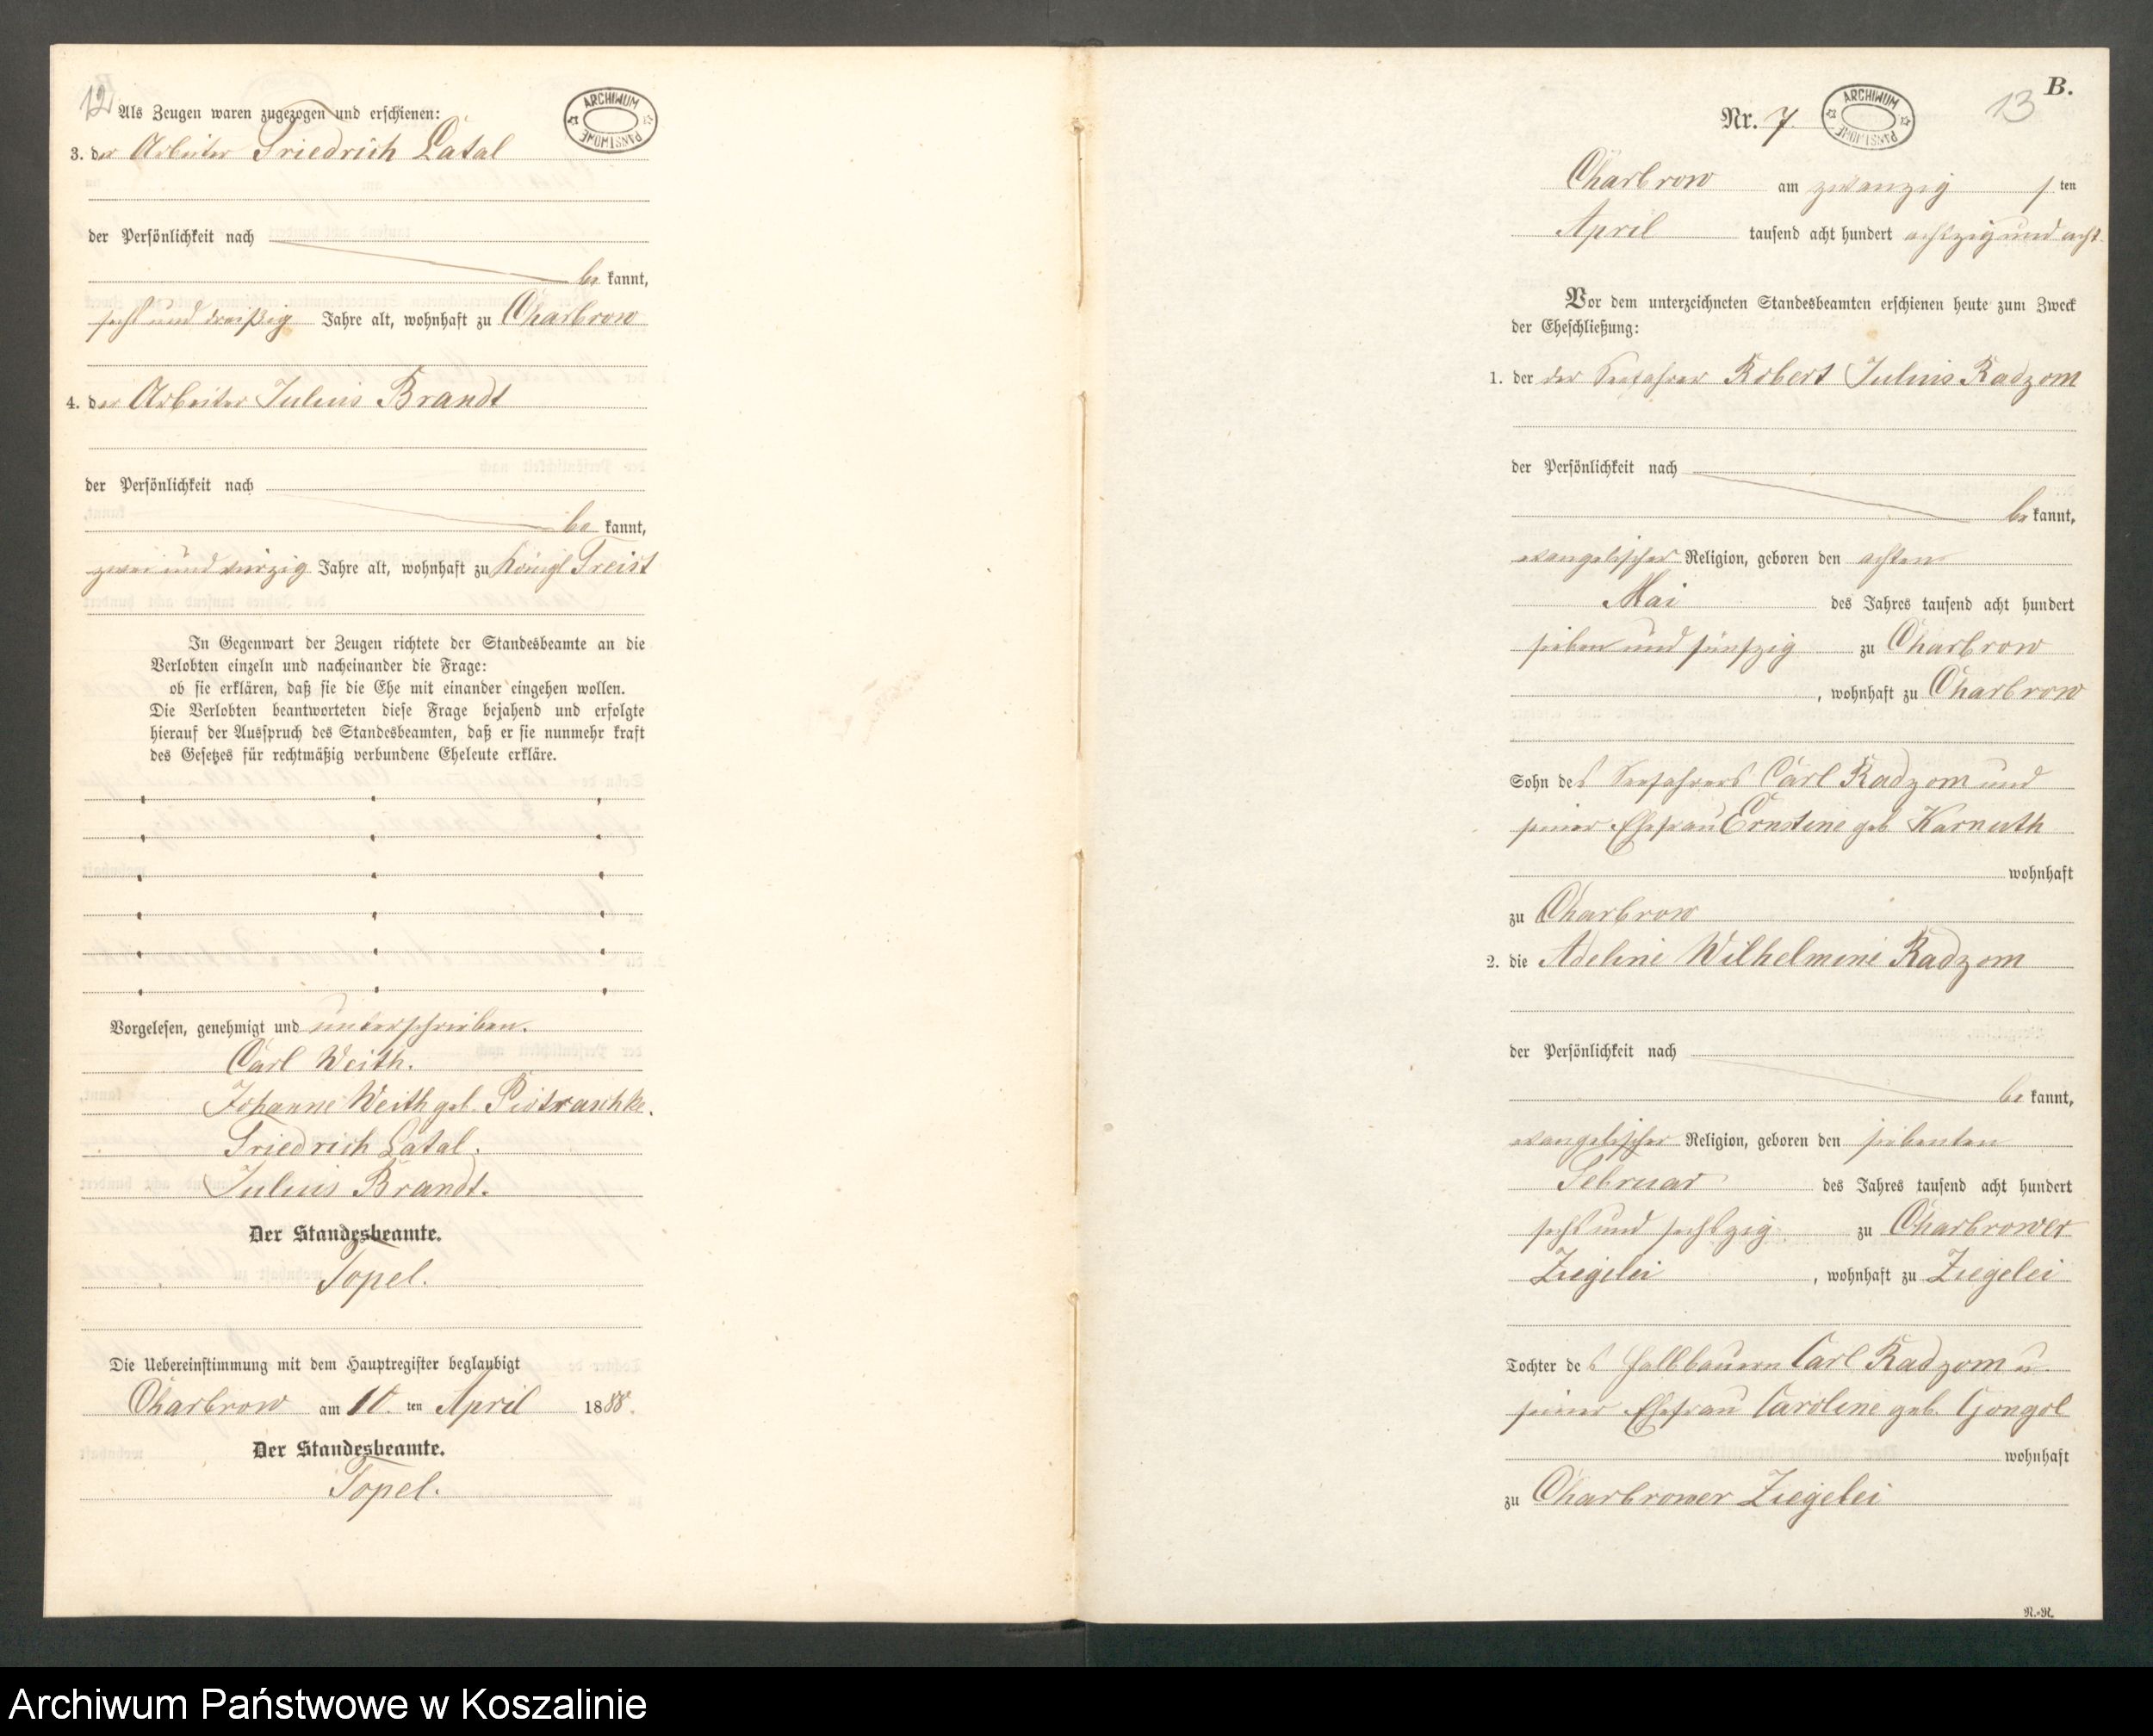 12
Als Zeugen waren zugezogen und erschienen:
ARCHIWUM PAŃSTWOWE
3. der Arbeiter Friedrich Latal
der Persönlichkeit nach
be kannt,
sechs und dreißig Jahre alt, wohnhaft zu Charbrow
4. der Arbeiter Julius Brandt
der Persönlichkeit nach
be kannt,
zwei und vierzig Jahre alt, wohnhaft zu Königl Freist
In Gegenwart der Zeugen richtete der Standesbeamte an die
Verlobten einzeln und nacheinander die Frage:
ob sie erklären, daß sie die Ehe mit einander eingehen wollen.
Die Verlobten beantworteten diese Frage bejahend und erfolgte
hierauf der Ausspruch des Standesbeamten, daß er sie nunmehr kraft
des Gesetzes für rechtmäßig verbundene Eheleute erkläre.
Vorgelesen, genehmigt und unterschrieben.
Carl Weith.
Johanne Weith geb. Piotraschke.
Friedrich Latal.
Julius Brandt.
Der Standesbeamte.
Topel.
Die Uebereinstimmung mit dem Hauptregister beglaubigt
Charbrow am 10. ten April 1888.
Der Standesbeamte.
Topel.
B.
13
Nr. 7.
ARCHIWUM PAŃSTWOWE
Charbrow am zwanzig s ten
April tausend acht hundert achtzig und acht
Vor dem unterzeichneten Standesbeamten erschienen heute zum Zweck
der Eheschließung:
1. der der Seefahrer Robert Julius Radzom
der Persönlichkeit nach
be kannt,
evangelischer Religion, geboren den achten
Mai des Jahres tausend acht hundert
sieben und fünfzig zu Charbrow
, wohnhaft zu Charbrow
Sohn des Seefahrers Carl Radzom und
seiner Ehefrau Ernstine geb Karnuth
wohnhaft
zu Charbrow
2. die Adeline Wilhelmine Radzom
der Persönlichkeit nach
be kannt,
evangelischer Religion, geboren den siebenten
Februar des Jahres tausend acht hundert
sechs und sechszig zu Charbrower
Ziegelei , wohnhaft zu Ziegelei
Tochter des Halbbauern Carl Radzom u
seiner Ehefrau Caroline geb. Gongol
wohnhaft
zu Charbrower Ziegelei
N.-N.
Archiwum Państwowe w Koszalinie